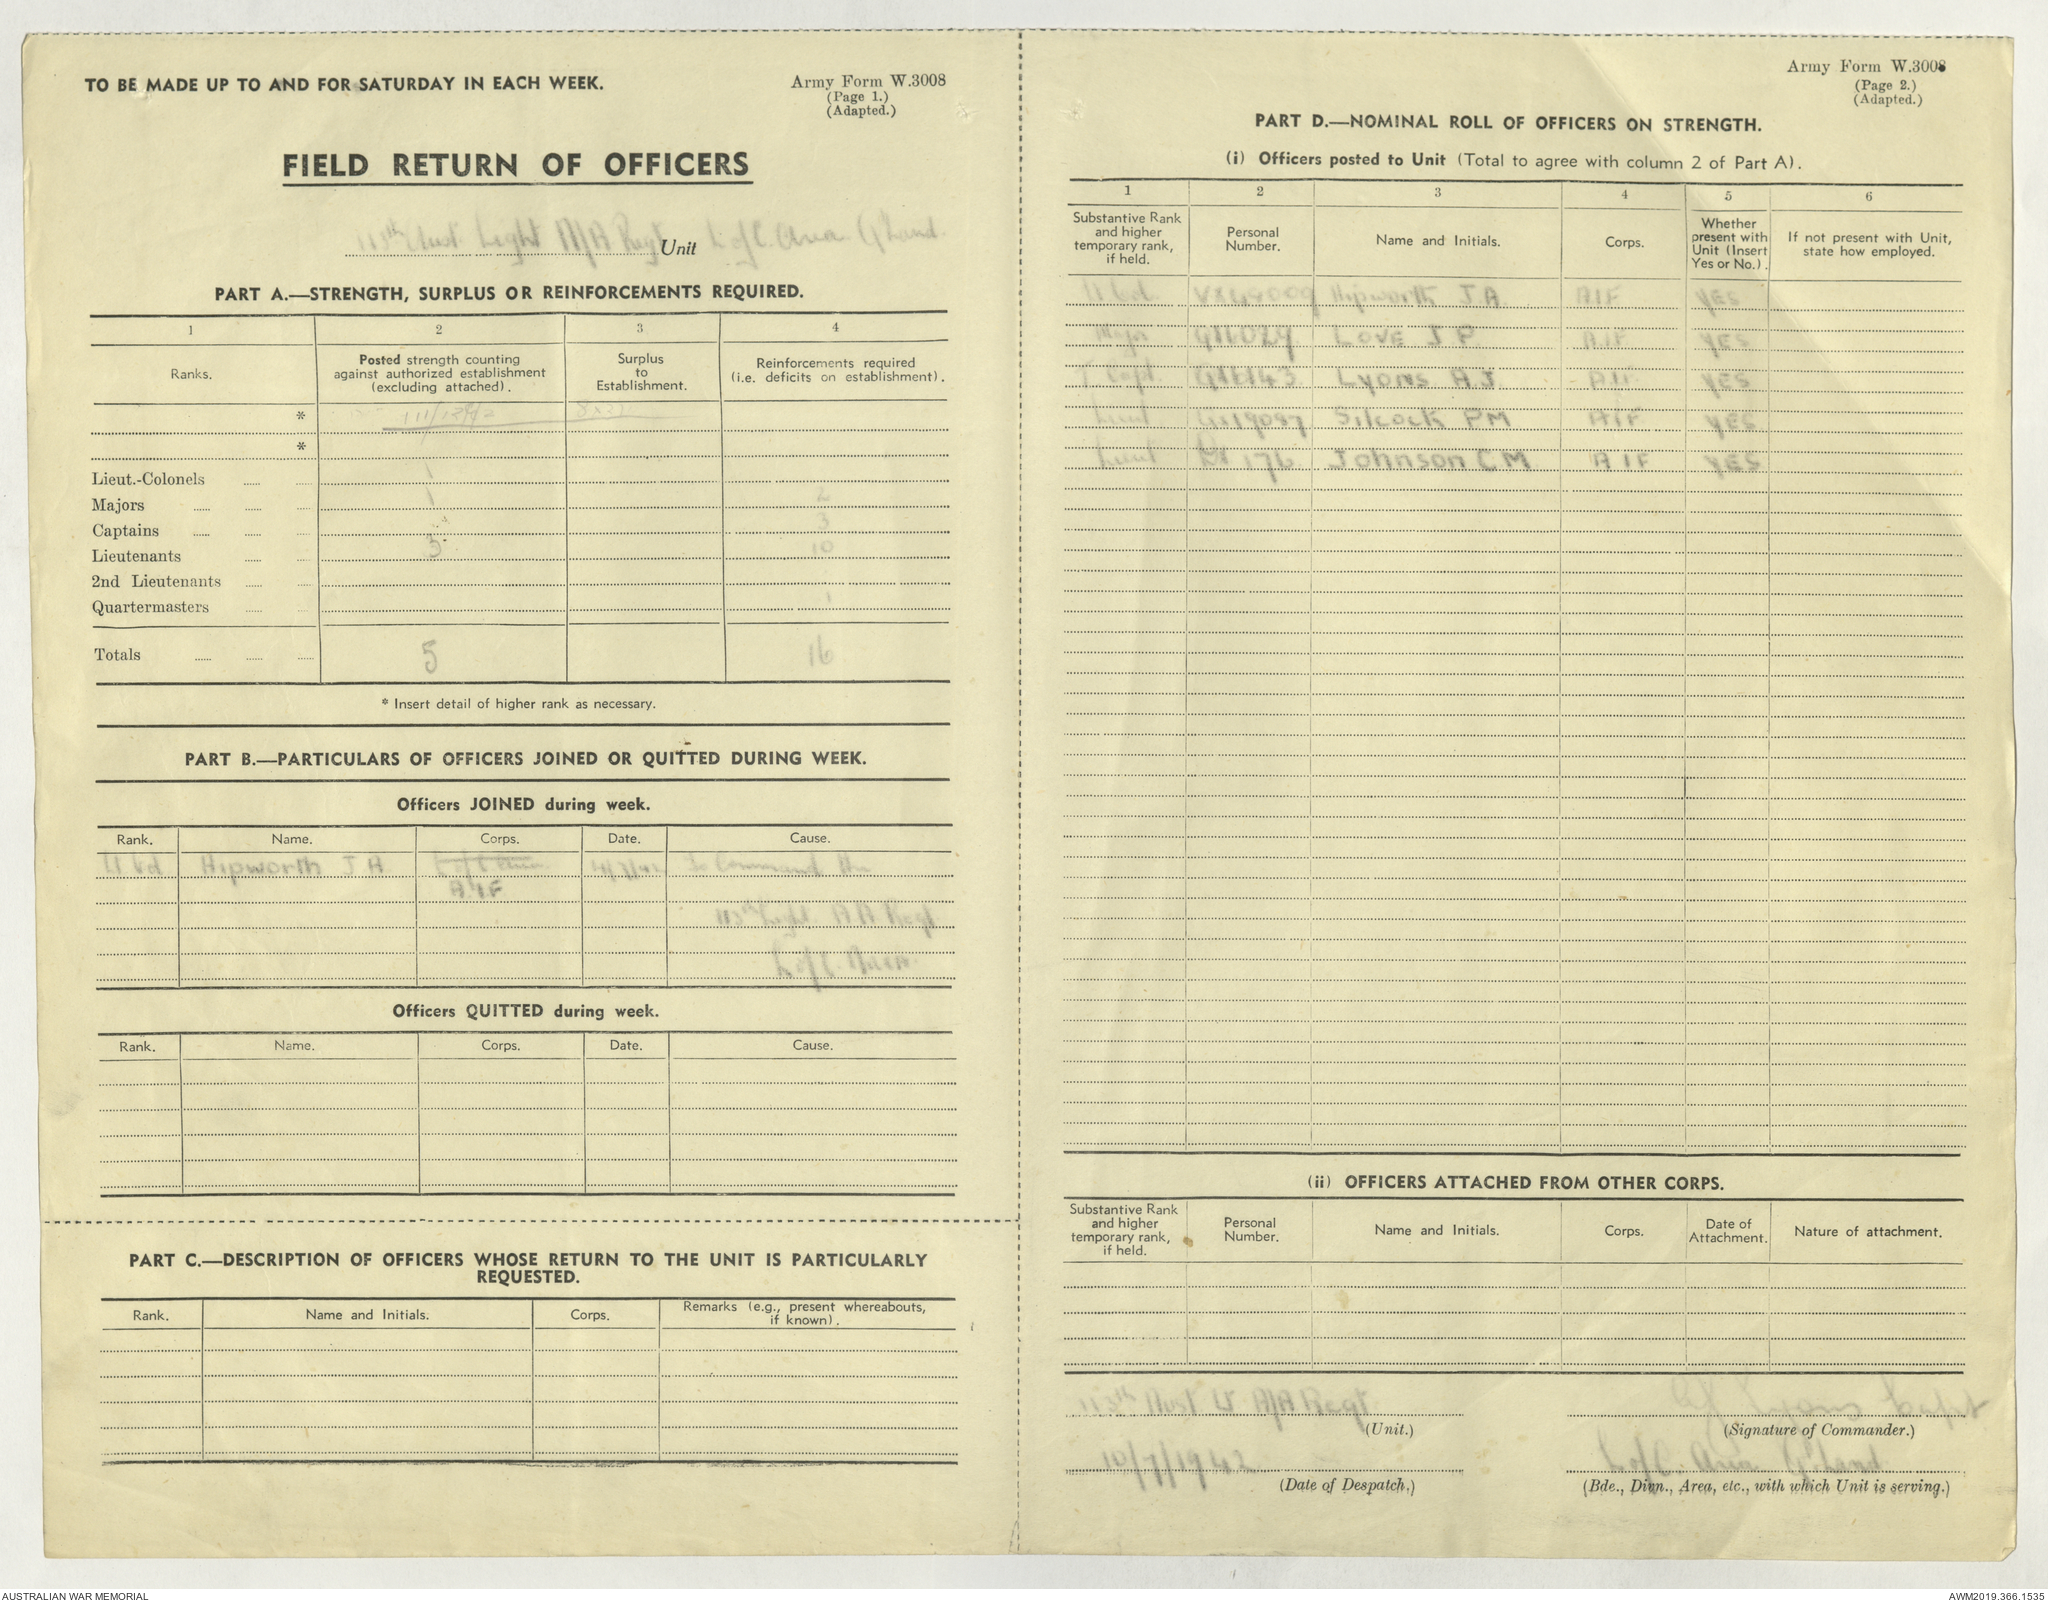 TO BE MADE UP TO AND FOR SATURDAY IN EACH WEEK.
Army Form W.3008
(Page 1.)
(Adapted.)
FIELD RETURN OF OFFICERS
113th Aust. Light A/A Regt Unit L of C. Area Q'land.
PART A.—STRENGTH, SURPLUS OR REINFORCEMENTS REQUIRED.
1 2 3 4
Ranks.
Posted strength counting
against authorized establishment
(excluding attached).
Surplus
to
Establishment.
Reinforcements required
(i.e. deficits on establishment).
*
*
Lieut.-Colonels 1
Majors 1 2
Captains 3
Lieutenants 3 10
2nd Lieutenants
Quartermasters 1
Totals 5 16
* Insert detail of higher rank as necessary.
PART B.—PARTICULARS OF OFFICERS JOINED OR QUITTED DURING WEEK.
Officers JOINED during week.
Rank. Name. Corps. Date. Cause.
Lt Col Hipworth J A L of C Area To Command the
A.I.F
113th Light A A Regt
L of C. Area.
Officers QUITTED during week.
Rank. Name. Corps. Date. Cause.
PART C.—DESCRIPTION OF OFFICERS WHOSE RETURN TO THE UNIT IS PARTICULARLY
REQUESTED.
Rank. Name and Initials. Corps. Remarks (e.g., present whereabouts,
if known).
Army Form W.3008
(Page 2.)
(Adapted.)
PART D.—NOMINAL ROLL OF OFFICERS ON STRENGTH.
(i) Officers posted to Unit (Total to agree with column 2 of Part A).
1 2 3 4 5 6
Substantive Rank
and higher
temporary rank,
if held.
Personal
Number.
Name and Initials.
Corps.
Whether
present with
Unit (Insert
Yes or No.).
If not present with Unit,
state how employed.
Lt Col. Hipworth J A AIF YES
Major LOVE J P AIF YES
Capt. Lyons A J. AIF YES
Lieut Silcock PM AIF YES
Lieut Johnson C M AIF YES
(ii) OFFICERS ATTACHED FROM OTHER CORPS.
Substantive Rank
and higher
temporary rank,
if held.
Personal
Number.
Name and Initials.
Corps.
Date of
Attachment.
Nature of attachment.
113th Aust Lt A/A Regt
(Unit.)
10/7/1942
(Date of Despatch.)
Lyons Capt
(Signature of Commander.)
L of C. Area Q'land
(Bde., Divn., Area, etc., with which Unit is serving.)
AUSTRALIAN WAR MEMORIAL
AWM2019.366.1535